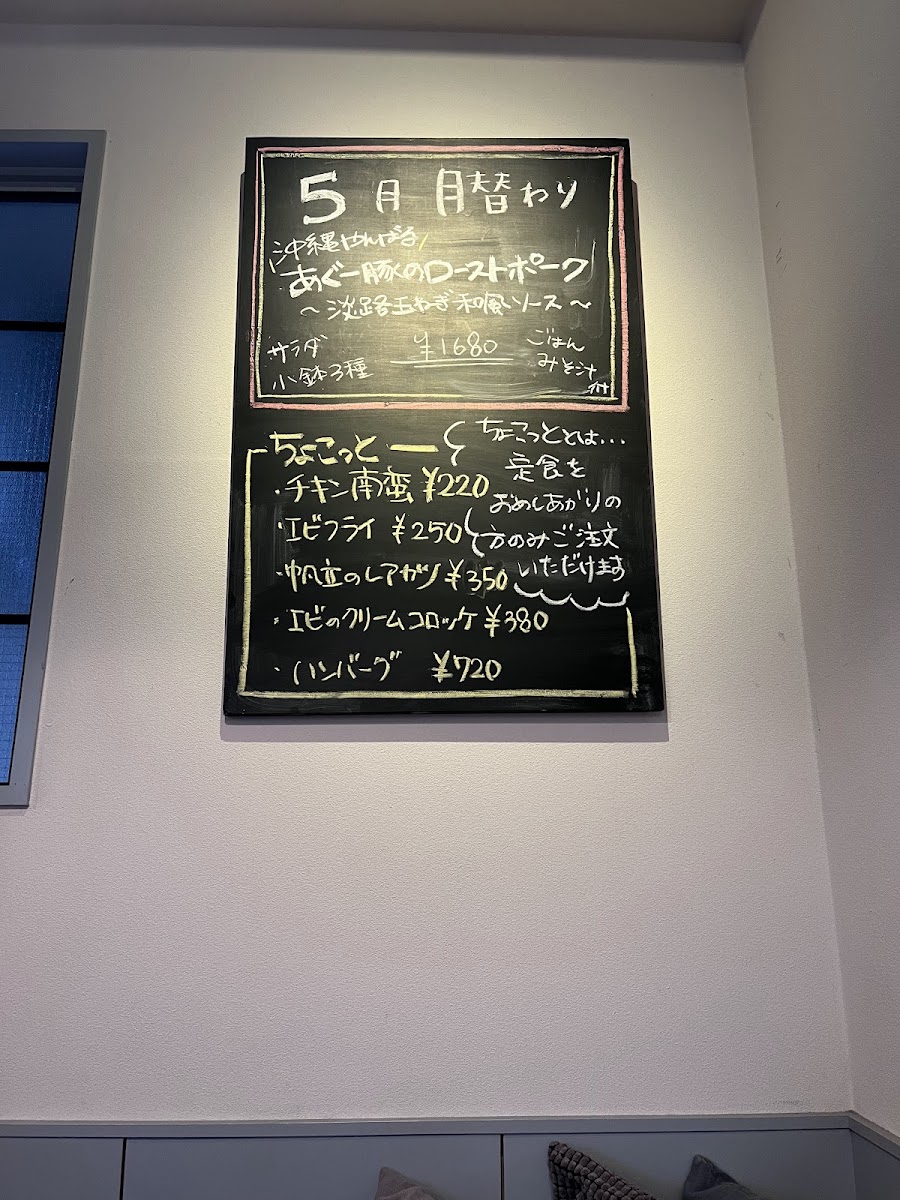 5月 月替わり
沖縄やんばる
あぐー豚のローストポーク
～淡路玉ねぎ和風ソース～
サラダ
小鉢3種
¥1680
ごはん
みそ汁
付
ちょこっと
・チキン南蛮 ¥220
・エビフライ ¥250
・帆立のレアカツ ¥350
・エビのクリームコロッケ ¥380
・ハンバーグ ¥720
ちょこっととは...
定食を
おめしあがりの
方のみご注文
いただけます